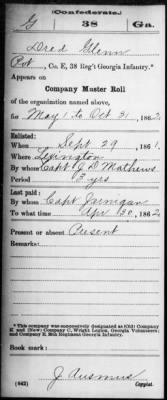 (Confederate.)
G 38 Ga.
Dred Glenn
Pvt., Co. E, 38 Reg't Georgia Infantry.*
Appears on
Company Muster Roll
of the organization named above,
for May 1 to Oct 31, 1862.
Enlisted:
When Sept 29, 1861.
Where Livington
By whom Capt J D Mathews
Period 3 yrs
Last paid:
By whom Capt Jarnigan
To what time Apr 30, 1862
Present or absent Present
Remarks:
*This company was successively designated as (Old) Company
E and (New) Company C, Wright Legion, Georgia Volunteers;
and Company E, 38th Regiment Georgia Infantry.
Book mark:
J Ausmus
(642) Copyist.